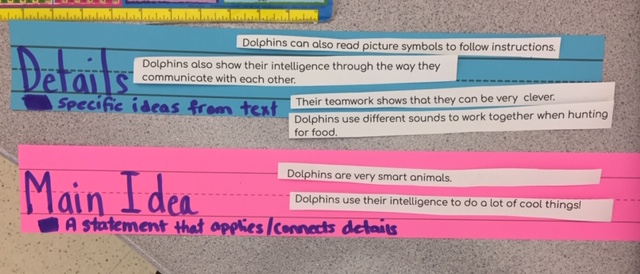 Dolphins can also read picture symbols to follow instructions.
Details
Dolphins also show their intelligence through the way they
communicate with each other.
Specific ideas from text
Their teamwork shows that they can be very clever.
Dolphins use different sounds to work together when hunting
for food.
Main Idea
Dolphins are very smart animals.
Dolphins use their intelligence to do a lot of cool things!
A statement that applies/connects details